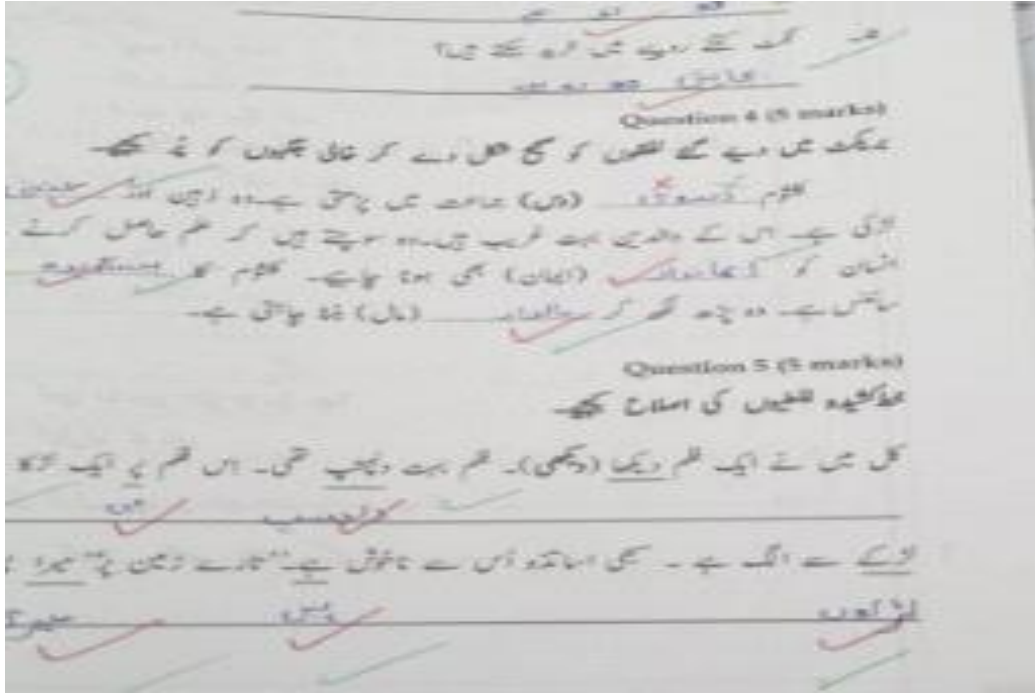 ٹکٹ کتنے روپے میں خرید سکتے ہیں؟
Question 4 (5 marks)
بریکٹ میں دیے گئے لفظوں کو صحیح شکل دے کر خالی جگہوں کو پُر کیجیے۔
کلثوم دسویں (دس) جماعت میں پڑھتی ہے۔وہ ذہین
لڑکی ہے۔ اس کے والدین بہت غریب ہیں۔وہ سوچتے ہیں کہ علم حاصل کرنے
انسان کو ایماندار (ایمان) بھی ہونا چاہیے۔ کلثوم کا پسندیدہ
سائنس ہے۔ وہ پڑھ لکھ کر مالدار (مال) بننا چاہتی ہے۔
Question 5 (5 marks)
خط کشیدہ غلطیوں کی اصلاح کیجیے۔
کل میں نے ایک فلم دیکھا (دیکھی)۔ فلم بہت دلچپ تھی۔ اِس فلم پر ایک لڑکا
میں دلچسپ
لڑکے سے الگ ہے ۔ سبھی اساتذہ اُس سے ناخوش ہے۔"تارے زمین پر" میرا
لڑکوں ہیں میری